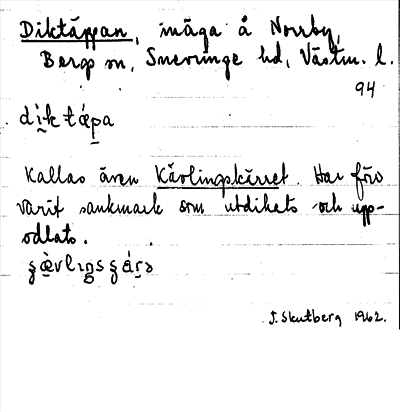 Diktäppan, inäga å Norrby,
Bergs sn, Snevringe hd, Västm. l.
94
dı̀ktæ̀pa
Kallas även Kävlingskärret. Har förr
varit sankmark som utdikats och upp-
odlats.
ʂæ̀vlıŋsʂárə
J. Skutberg 1962.